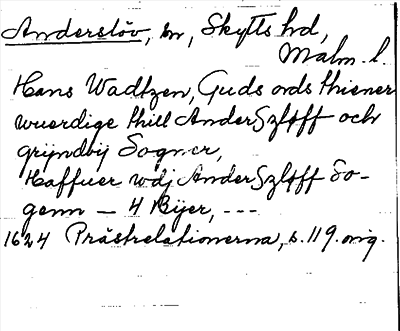 Anderslöv, sn, Skytts hd,
Malm. l.
Hans Wadtzen, Guds ords thiener
wuerdige thill AnderSzlöff och
grijndbij Sogner,
Haffuer wdj AnderSzlöff So-
genn — 4 Bijer, ---
1624 Prästrelationerna, s. 119. orig.